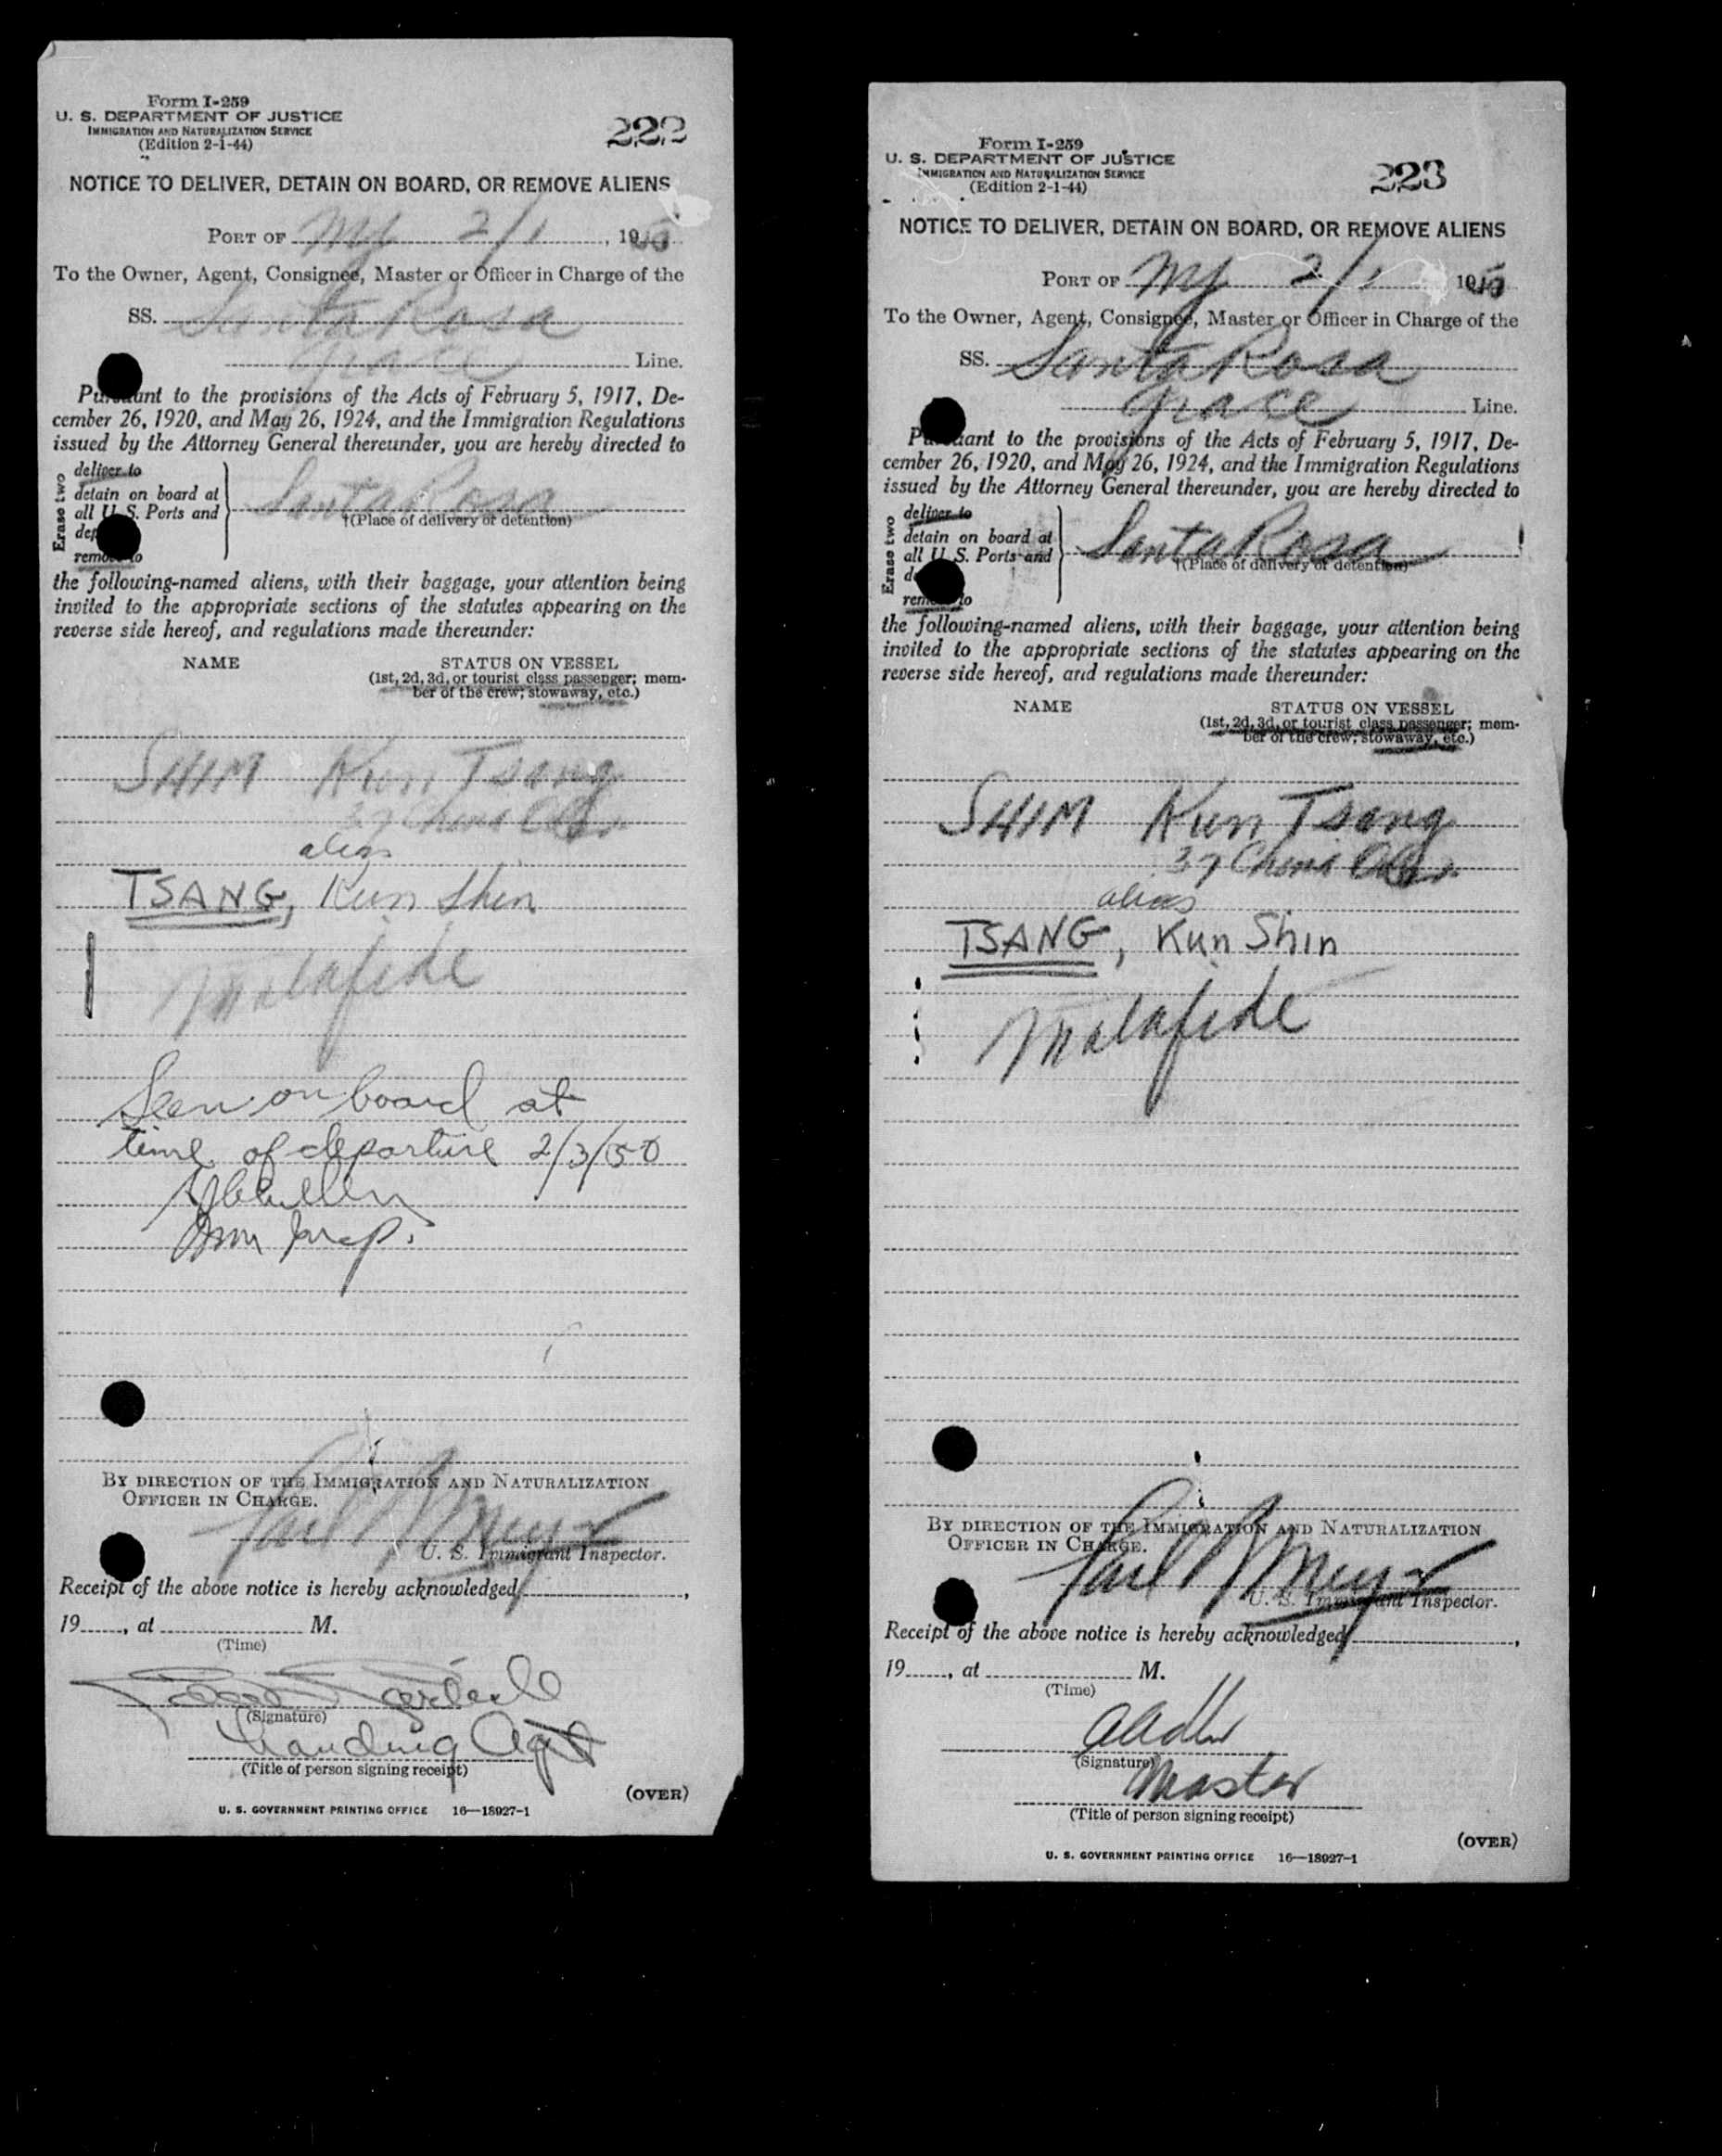 Form I-259
U. S. DEPARTMENT OF JUSTICE
IMMIGRATION AND NATURALIZATION SERVICE
(Edition 2-1-44)
222
NOTICE TO DELIVER, DETAIN ON BOARD, OR REMOVE ALIENS
PORT OF NY 2/1, 1950
To the Owner, Agent, Consignee, Master or Officer in Charge of the
SS. Santa Rosa
Grace Line.
Pursuant to the provisions of the Acts of February 5, 1917, De-
cember 26, 1920, and May 26, 1924, and the Immigration Regulations
issued by the Attorney General thereunder, you are hereby directed to
Erase two
deliver to
detain on board at
all U. S. Ports and
remove to
Santa Rosa
†(Place of delivery or detention)
the following-named aliens, with their baggage, your attention being
invited to the appropriate sections of the statutes appearing on the
reverse side hereof, and regulations made thereunder:
NAME STATUS ON VESSEL
(1st, 2d, 3d, or tourist class passenger; mem-
ber of the crew; stowaway, etc.)
SHIM Kun Tsang
37 China
alias
TSANG, Kun Shin
Malafide
Seen on board at
time of departure 2/3/50
Imm Insp.
BY DIRECTION OF THE IMMIGRATION AND NATURALIZATION
OFFICER IN CHARGE.
U. S. Immigrant Inspector.
Receipt of the above notice is hereby acknowledged,
19, at M.
(Time)
(Signature)
Landing Agt
(Title of person signing receipt)
(OVER)
U. S. GOVERNMENT PRINTING OFFICE 16—18927-1
Form I-259
U. S. DEPARTMENT OF JUSTICE
IMMIGRATION AND NATURALIZATION SERVICE
(Edition 2-1-44)
223
NOTICE TO DELIVER, DETAIN ON BOARD, OR REMOVE ALIENS
PORT OF NY 2/1 1950
To the Owner, Agent, Consignee, Master or Officer in Charge of the
SS. Santa Rosa
Grace Line.
Pursuant to the provisions of the Acts of February 5, 1917, De-
cember 26, 1920, and May 26, 1924, and the Immigration Regulations
issued by the Attorney General thereunder, you are hereby directed to
Erase two
deliver to
detain on board at
all U. S. Ports and
remove to
Santa Rosa
†(Place of delivery or detention)
the following-named aliens, with their baggage, your attention being
invited to the appropriate sections of the statutes appearing on the
reverse side hereof, and regulations made thereunder:
NAME STATUS ON VESSEL
(1st, 2d, 3d, or tourist class passenger; mem-
ber of the crew; stowaway, etc.)
SHIM Kun Tsang
37 China
alias
TSANG, Kun Shin
Malafide
BY DIRECTION OF THE IMMIGRATION AND NATURALIZATION
OFFICER IN CHARGE.
U. S. Immigrant Inspector.
Receipt of the above notice is hereby acknowledged,
19, at M.
(Time)
(Signature)
Master
(Title of person signing receipt)
(OVER)
U. S. GOVERNMENT PRINTING OFFICE 16—18927-1